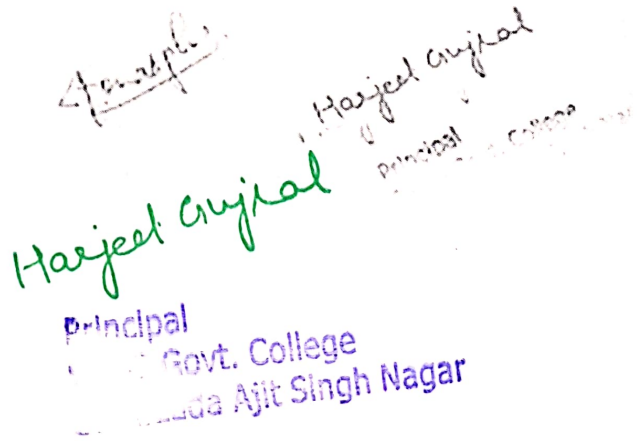 Harjeet Gujral
Principal
College
Harjeet Gujral
Principal
Govt. College
Ajit Singh Nagar